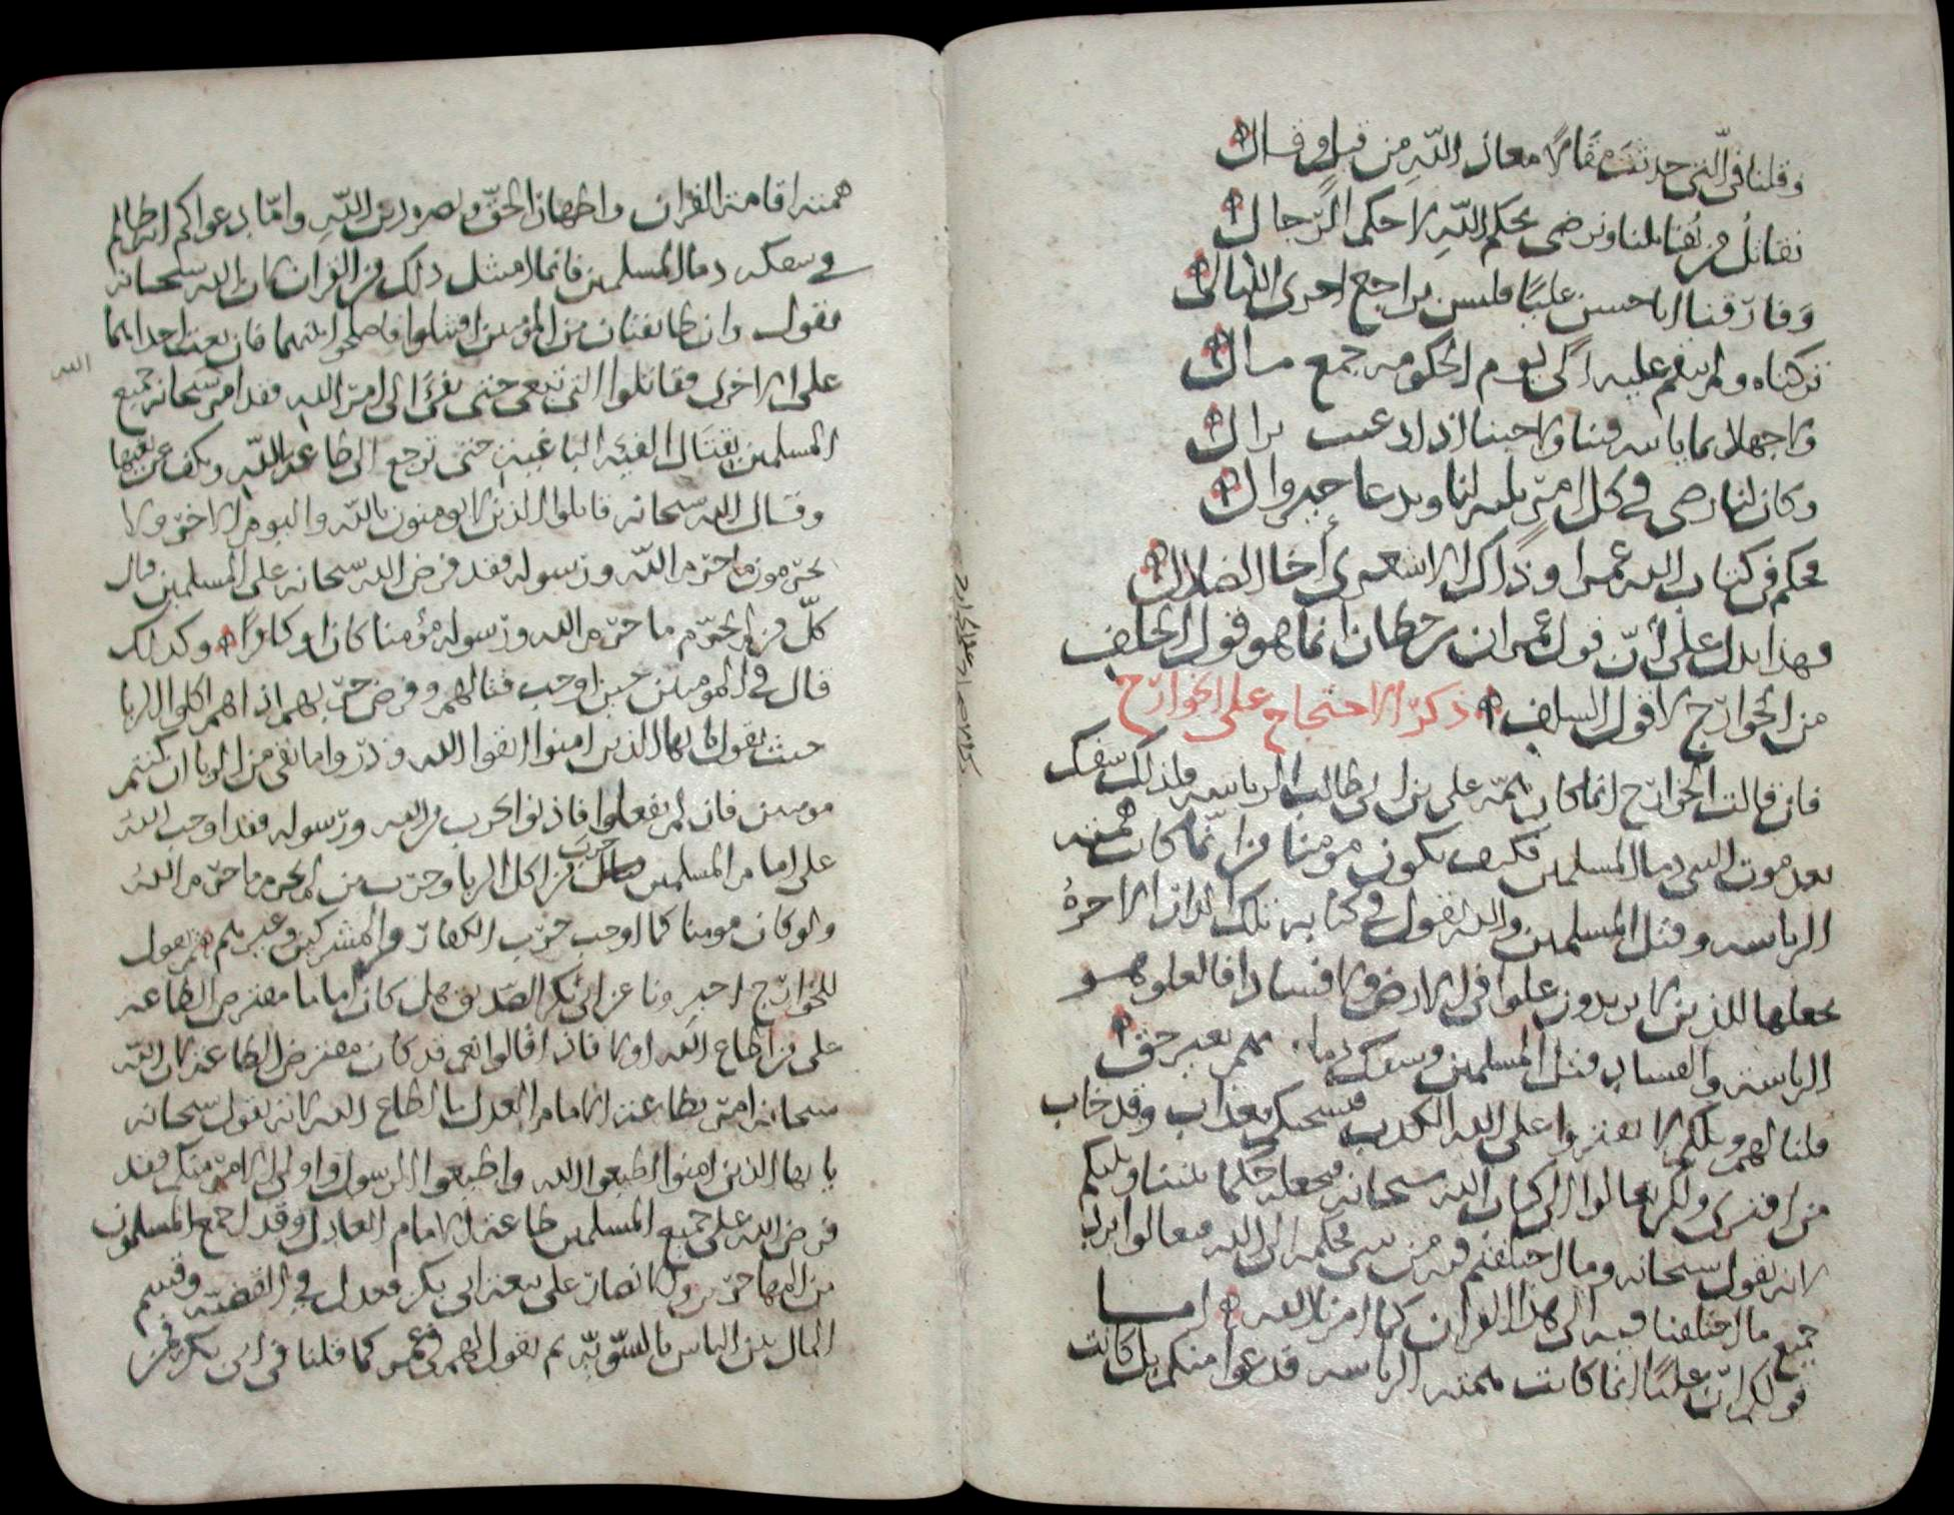 وقلنا في التي حدثت مقالا معاذ الله من قيل وقال
نقاتل من يقاتلنا ونرضى بحكم الله لا حكم الرجال
وفارقنا ابا حسن عليا فليس براجع احدى الليالي
تركناه ولم ننقم عليه اكى يوم الحكومة جمع مال
ولا جهلا بما ياسه فينا ولا حينا اذا دعيت نزال
وكان لنا رضى في كل امر لنا وبدعا خير وال
فحكم في كتاب الله عمرا وذاك الاشعري أخا الضلال
فهذا يدل على أن قول عمران بن حطان انما هو قول الخلف
من الخوارج لا قول السلف ذكر الاحتجاج على الخوارج
فان قالت الخوارج انما كان همة علي بن ابي طالب الرياسة ولذلك سفك
بعد موت النبي دماء المسلمين فكيف يكون مومنا من انما كانت همته
الرياسة وقتل المسلمين والله يقول في كتابه تلك الدار الاخرة
نجعلها للذين لا يريدون علوا في الارض ولا فسادا فالعلو هو
الرياسة والفساد قتل المسلمين وسفك دمائهم بغير حق
قلنا لهم ويلكم لا تفتروا على الله الكذب فيسحتكم بعذاب وقد خاب
من افترى ولكن تعالوا الى كتاب الله سبحانه فنجعله حكما بيننا وبينكم
لانه يقول سبحانه وما اختلفتم فيه من شي فحكمه الى الله فتعالوا نرد
جميع ما اختلفنا فيه الى هذا القران كما امرنا الله اما
قولكم ان عليا انما كانت همته الرياسة فدعوا منكم بل كانت
همته اقامة القران واظهار الحق ونصرة دين الله واما دعواكم انه ظالم
في سفكه دماء المسلمين فانما امتثل ذلك من القران لان الله سبحانه
يقول وان طائفتان من المومنين اقتتلوا فاصلحوا بينهما فان بغت احداهما
على الاخرى فقاتلوا التي تبغي حتى تفيء الى امر الله فقد امر سبحانه جميع
الله
المسلمين بقتال الفئة الباغية حتى ترجع الى طاعة الله وتكف عن بغيها
وقال الله سبحانه قاتلوا الذين لا يومنون بالله واليوم الاخر ولا
يحرمون ما حرم الله ورسوله فقد فرض الله سبحانه على المسلمين قتال
كل من لم يحرم ما حرم الله ورسوله مؤمنا كان او كافرا وكذلك
قال في المومنين حين اوجب قتالهم وفرض حربهم اذا هم اكلوا الربا
حيث يقول يا ايها الذين امنوا اتقوا الله وذروا ما بقي من الربا ان كنتم
مومنين فان لم تفعلوا فاذنوا بحرب من الله ورسوله فقد اوجب الله
على امام المسلمين حرب من اكل الربا وحرب من لم يحرم ما حرم الله
ولو كان مومنا كما اوجب حرب الكفار والمشركين وغيرهم ثم نقول
للخوارج اخبرونا عن ابي بكر الصديق هل كان اماما مفترض الطاعة
على من اطاع الله او لا فاذا قالوا نعم قد كان مفترض الطاعة لان الله
سبحانه امر بطاعة الامام العدل ما اطاع الله لانه يقول سبحانه
يا ايها الذين امنوا اطيعوا الله واطيعوا الرسول واولي الامر منكم فقد
فرض الله على جميع المسلمين طاعة الامام العادل وقد اجمع المسلمون
من المهاجرين والانصار على بيعة ابي بكر فعدل في القضية وقسم
المال بين الناس بالسوية ثم نقول لهم في عمر كما قلنا في ابي بكر فمن